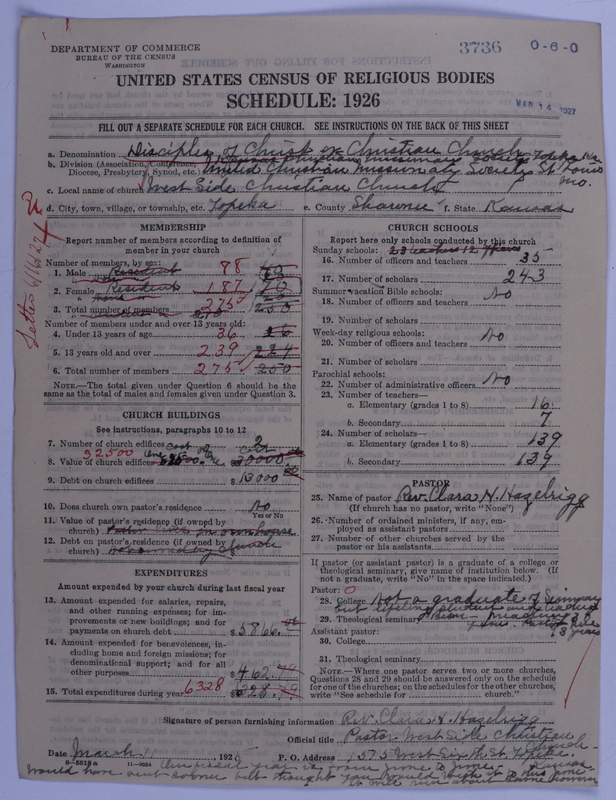 DEPARTMENT OF COMMERCE
BUREAU OF THE CENSUS
WASHINGTON
3736
0-6-0
MAR 14 1927
UNITED STATES CENSUS OF RELIGIOUS BODIES
SCHEDULE: 1926
FILL OUT A SEPARATE SCHEDULE FOR EACH CHURCH. SEE INSTRUCTIONS ON THE BACK OF THIS SHEET
a. Denomination Disciples of Christ or Christian Church
b. Division (Association, Conference, Kansas Christian Missionary Society Topeka
Diocese, Presbytery, Synod, etc.) United Christian Missionary Society St. Louis Mo.
c. Local name of church West Side Christian Church
d. City, town, village, or township, etc. Topeka e. County Shawnee f. State Kansas
MEMBERSHIP
Report number of members according to definition of member in your church
Number of members by sex:
1. Male Resident 88
2. Female Resident 187
3. Total number of members 275 250
Number of members under and over 13 years old:
4. Under 13 years of age 36 26
5. 13 years old and over 239 224
6. Total number of members 275 250
NOTE.—The total given under Question 6 should be the same as the total of males and females given under Question 3.
CHURCH BUILDINGS
See instructions, paragraphs 10 to 12
7. Number of church edifices 2
8. Value of church edifices 32500 $30000
9. Debt on church edifices $13000
10. Does church own pastor's residence No
Yes or No
11. Value of pastor's residence (if owned by church) Pastor lives in own house
12. Debt on pastor's residence (if owned by church)
EXPENDITURES
Amount expended by your church during last fiscal year
13. Amount expended for salaries, repairs, and other running expenses; for improvements or new buildings; and for payments on church debt $5866
14. Amount expended for benevolences, including home and foreign missions; for denominational support; and for all other purposes $462
15. Total expenditures during year 6328 $6328
CHURCH SCHOOLS
Report here only schools conducted by this church
Sunday schools: 23 teachers 12 officers
16. Number of officers and teachers 35
17. Number of scholars 243
Summer vacation Bible schools: No
18. Number of officers and teachers
19. Number of scholars
Week-day religious schools: No
20. Number of officers and teachers
21. Number of scholars
Parochial schools:
22. Number of administrative officers No
23. Number of teachers—
a. Elementary (grades 1 to 8) 16
b. Secondary 7
24. Number of scholars—
a. Elementary (grades 1 to 8) 139
b. Secondary 139
PASTOR
25. Name of pastor Rev. Clara H. Hazelrigg
(If church has no pastor, write "None")
26. Number of ordained ministers, if any, employed as assistant pastors
27. Number of other churches served by the pastor or his assistants
If pastor (or assistant pastor) is a graduate of a college or theological seminary, give name of institution below. (If not a graduate, write "No" in the space indicated.)
Pastor:
28. College Not a graduate of Seminary
29. Theological seminary
Assistant pastor:
30. College
31. Theological seminary
NOTE.—Where one pastor serves two or more churches, Questions 28 and 29 should be answered only on the schedule for one of the churches; on the schedules for the other churches, write "See schedule for church."
Signature of person furnishing information Rev. Clara H. Hazelrigg
Official title Pastor West Side Christian Church
Date March 1 192 P. O. Address 1575 West Sixth St. Topeka Kansas
Our fiscal year is from June to June.
Would have sent sooner but thought you would wish it to this June.